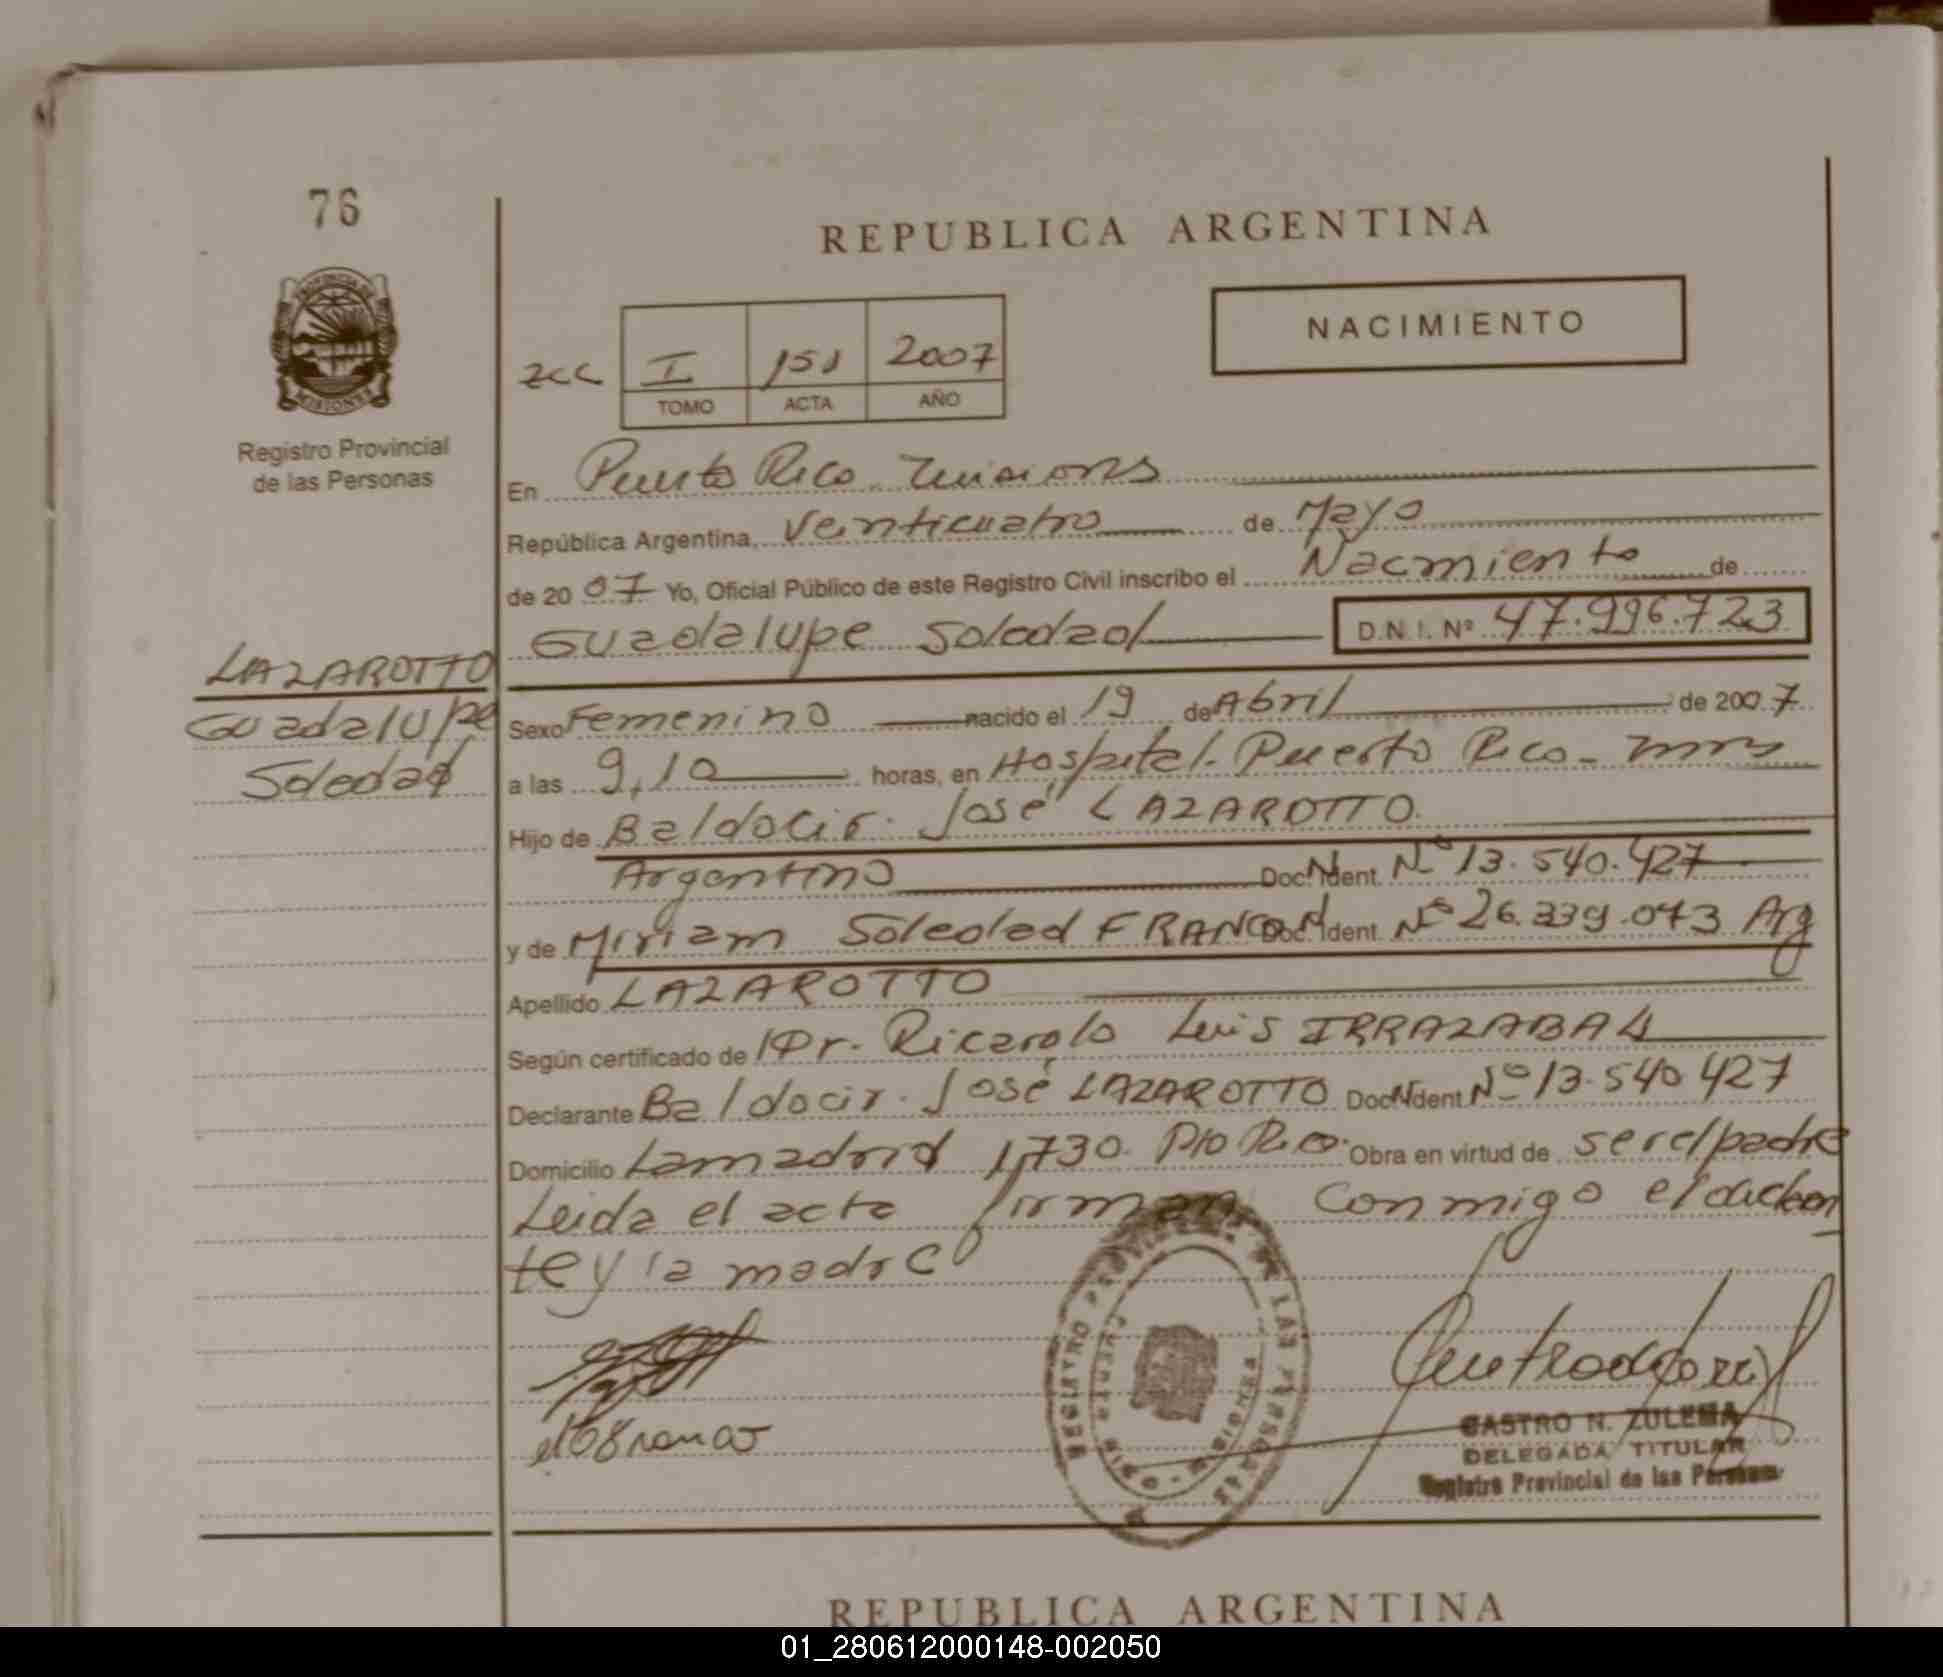 76
REPUBLICA ARGENTINA
PROVINCIA DE
MISIONES
Registro Provincial
de las Personas
NACIMIENTO
I 151 2007
TOMO ACTA AÑO
En Puerto Rico. Misiones
República Argentina, Veinticuatro de Mayo
de 20 07 Yo, Oficial Público de este Registro Civil inscribo el Nacmiento de
Guadalupe Soledad D.N.I. Nº 47.996.723
LAZAROTTO
Guadalupe
Soledad
Sexo Femenino nacido el 19 de Abril de 2007
a las 9,10 horas, en Hospital. Puerto Rico - Mnes
Hijo de Baldocir. José LAZAROTTO.
Argentino Doc. Ident. Nº 13.540.427
y de Miriam Soledad FRANCO Doc. Ident. Nº 26.339.073 Arg
Apellido LAZAROTTO
Según certificado de Dr. Ricardo Luis IRRAZABAL
Declarante Baldocir. José LAZAROTTO Doc. Ident. Nº 13.540.427
Domicilio Lamadrid 1730. Pto Rico. Obra en virtud de ser el padre
Leida el acta firman conmigo el
te y la madre
REGISTRO PROVINCIAL DE LAS PERSONAS
MISIONES
CASTRO N. ZULEMA
DELEGADA TITULAR
Registro Provincial de las Personas
REPUBLICA ARGENTINA
01_280612000148-002050